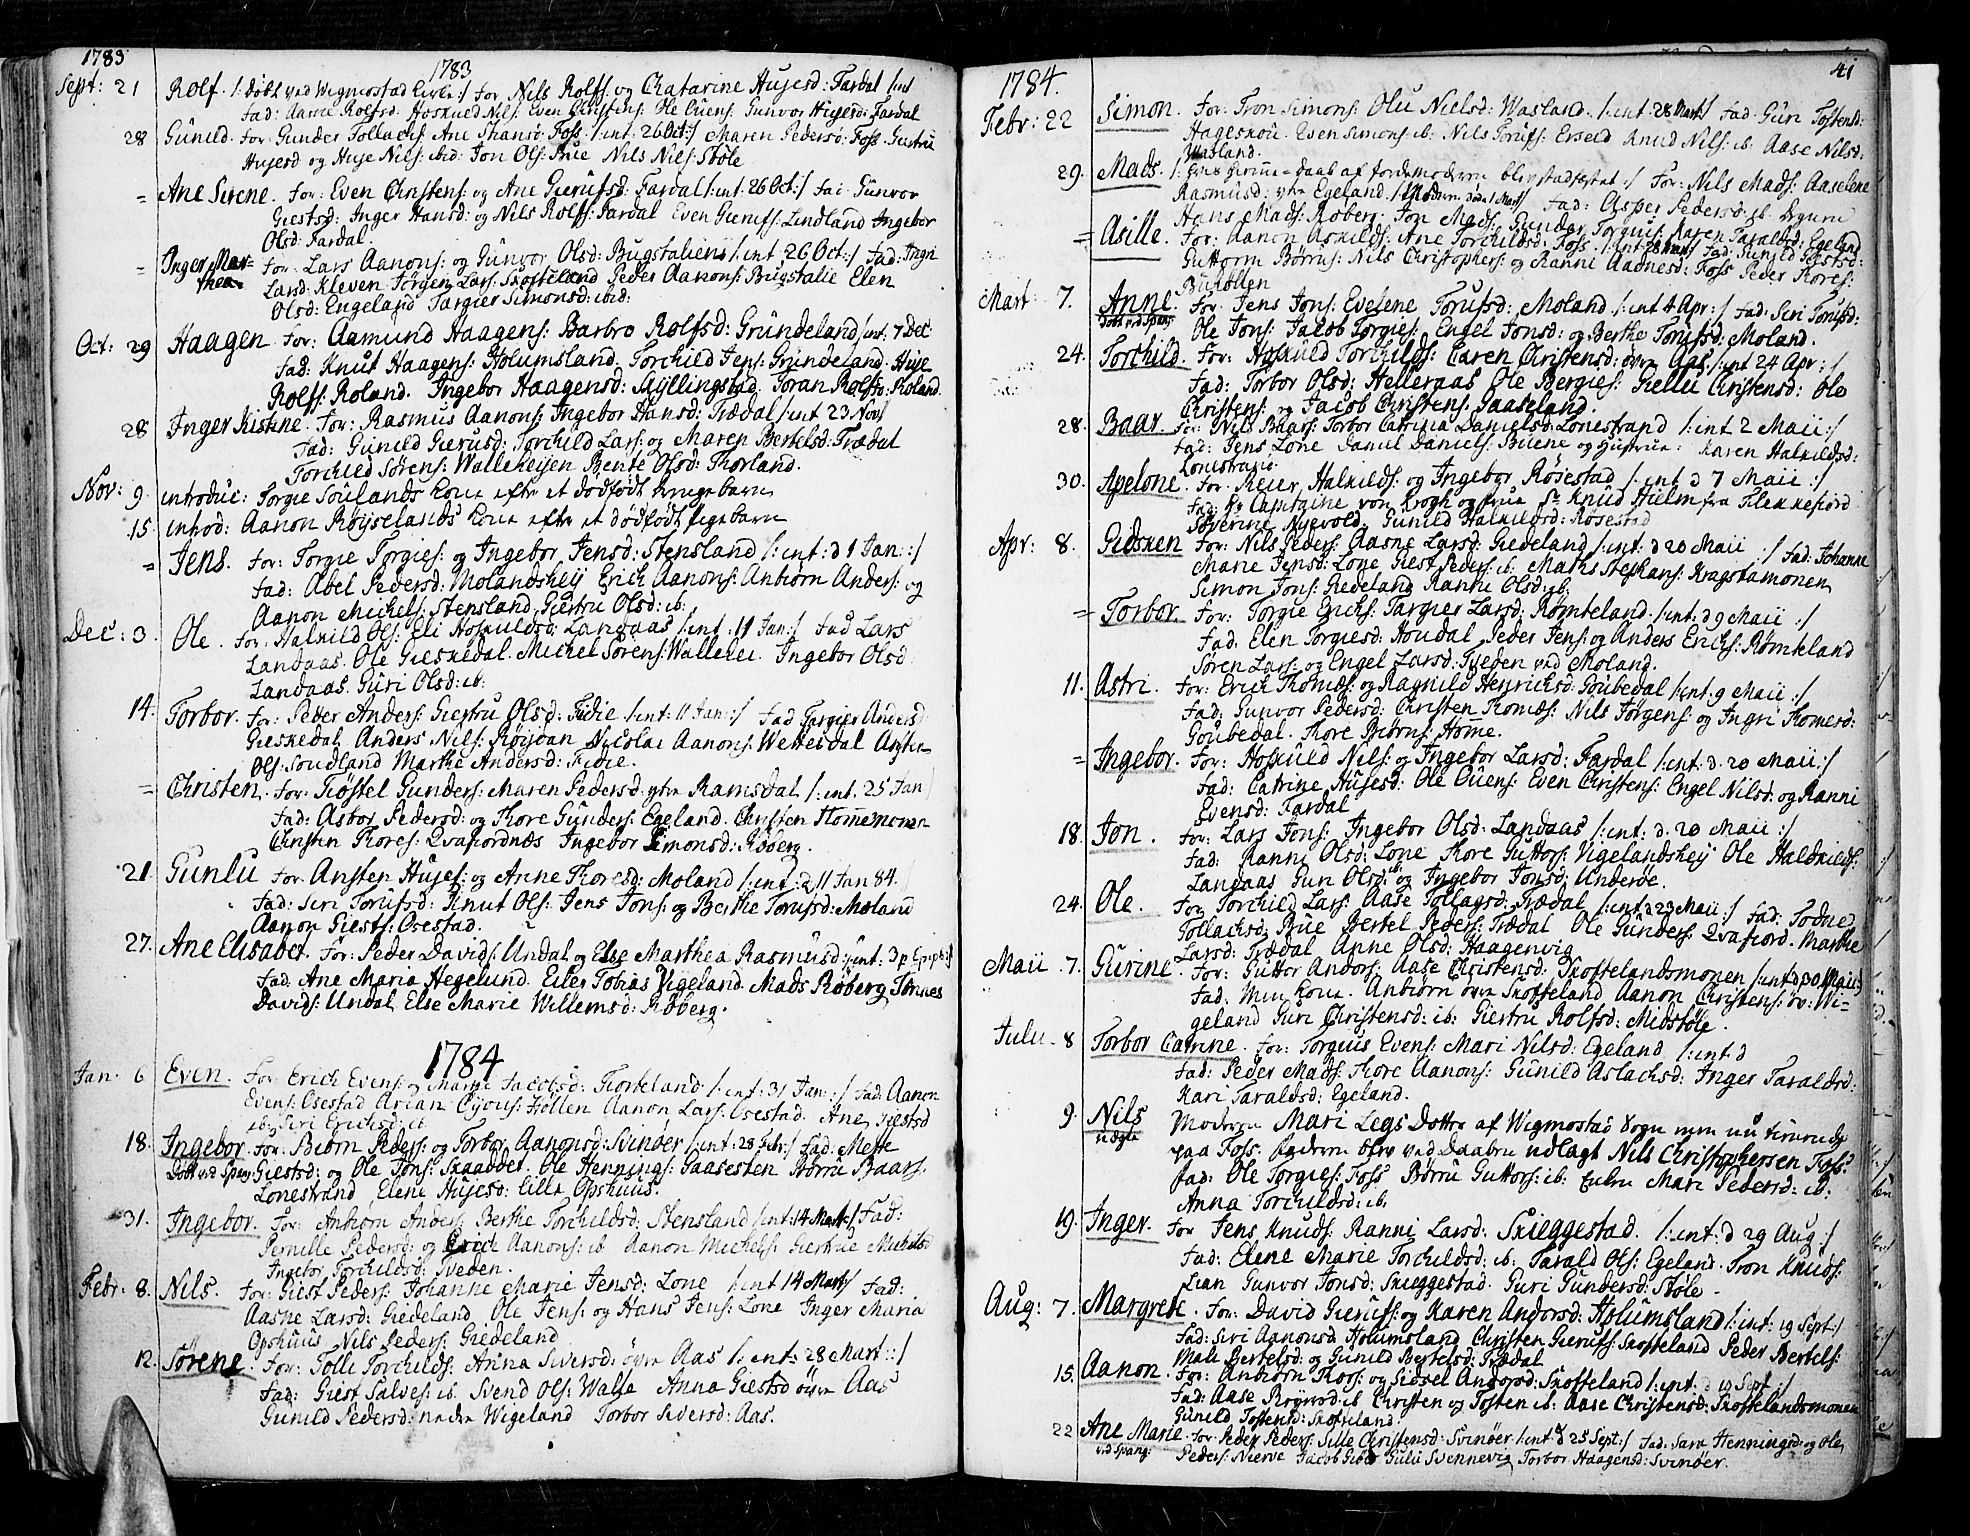 1783
1783
Sept: 21 Rolf. /: døbt ved Wigmostad Kirke :/ For: Nils Rolfs: og Chatarine Hujesd: Fardal /: int
Fad: Aanne Rolfsd: Hoskued Nils: Even Christens: Ole Evens: Gunvor Hujesd: Fardal
28 Gunild. For: Gunder Tollachs: Ane Foss /: int: 26 Oct:/ Maren Pedersd: Foss Giertru
Hujesd og Huje Nils: ibid: Jon Ols: Nils Nils: Støle
= Ane Sirene. For: Even Christens: og Ane Gierulfsd: Fardal /: int: 26 Oct:/ Fad: Gunvor
Giestsd: Inger Hansd: og Nils Rolfs: Fardal Even Gierulfs: Lindland Ingebor
Olsd: Fardal.
= Inger Mar= For: Lars Aanons: og Gunvor Olsd: Bugstalien /: int 26 Oct:/ Fad: Ingri
thea. Larsd: Kleven Jørgen Lars: Skofteland Peder Aanons: Bugstalie Elen
Olsd: Engeland Targier Simonsd: ibid:
Oct: 29 Haagen For: Aamund Haagens: Barbro Rolfsd: Grundeland /: int: 7 Dec
Fad: Knut Haagens: Holumsland. Torchild Jens: Grundeland Huje
Rolfs: Roland. Ingebor Haagensd: Skyllingstad Toran Rolfsd: Roland.
28 Inger Kistine. For: Rasmus Aanons: Ingebor Hansd: Trædal /: int 23 Nov:/
Fad: Gunild Gierusd: Torchild Lars: og Maren Bertelsd: Trædal
Torchild Sørens: Walleheyen Bente Olsd: Thorland.
Nov: 9. introduc: Torgie Soulands kone efter et dødfødt drengebarn
15 introd: Aanon Røyselands kone efter et dødfødt pigebarn
= Jens. For: Torgie Torgies: og Ingebor Jensd: Stensland /: int: d 1 Jan ::/
Fad: Abel Pedersd: Molandsheij Erich Aanons: Anbiørn Anders: og
Aanon Michels: Stensland Giertru Olsd: ib:
Dec: 3. Ole. For: Halkild Ols: Eli Hoskuldsd: Landaas /: int: 11 Jan:/ Fad Lars
Landaas. Ole Gieskedal. Michel Sørens: Wallehei. Ingebor Olsd:
Landaas. Guri Olsd: ib:
14. Torbor. For: Peder Anders: Giertru Olsd: Fidie /: int: 11 Jan:/ Fad Targier Andersd:
Gieskedal Anders Nils: Røisdan Nicolai Aanons: Wettesdal
Ols: Soudland Marthe Andersd: Fidie.
= Christen. For: Tiøstel Gunders: Maren Pedersd: ytre Ramsdal /: int. 25 Jan
Fad: Asbor Pedersd: og Thore Gunders: Egeland. Christen Hommemonen
Christen Thores: Qvafiordnæs Ingebor Simonsd: Røberg.
21 Gunlu For: Ansten Hujes: og Anne Thoresd: Moland /: int: d 11 Jan 84.
Fad: Siri Torufsd: Knut Ols: Jens Jons: og Berthe Torufsd: Moland
Aanon Giests: Osestad.
27. Ane Elisabet. For: Peder Davids: Undal og Else Marthea Rasmusd: /: int: 3 p Epiph:/
Fad. Ane Maria Hegelund. Eiler Tobias Vigeland Mads Røberg Tønnes
Davids: Undal Else Marie Willemsd: Røberg.
1784
Jan. 6 Even. For: Erich Evens: og Marthe Jacobsd: Tiorkeland /: int: 31 Jan:/ Fad: Aanon
Evens: Osestad Føllen Aanon Lars: Osestad Ane Giestsd
ib: Siri Erichsd: ib
18. Ingebor For: Biørn Peders: og Torbor Aanonsd: Svinøer /: int: 28 Febr:/ Fad: Mette
Døbt ved Spang Giestsd: og Ole Jons: Skaaddel. Ole Hennings: Gaasesten Børru Baars:
Lonestrand Elene Hujesd: Lille Opshuus.
31. Ingebor. For: Anbiørn Anders: Berthe Torchildsd: Stensland /: int: 14 Mart:/ Fad:
Pernille Pedersd: og Erich Aanons: ib Aanon Michels: Giertrue Michelsd
Ingebor Torchildsd: Tveden.
Febr: 8. Nils. For: Giest Peders: Johanne Marie Jensd: Lone /: int 14 Mart:/ Fad:
Aasne Larsd: Giedeland Ole Jens: og Hans Jens: Lone Inger Maria
Opshuus Nils Peders: Giedeland
12. Sørene. For: Tolli Torchilds: Anna Siversd: øvre Aas /: int: 28 Mart ::/
Fad: Giest Salves: ib. Svend Ols: Walle Anna Giestsd øvre Aas
Gunild Pedersd: nedre Wigeland Torbor Siversd: Aas.
41
1784.
Febr: 22 Simon. For: Tron Simons: Olu Nielsd: Wasland. /: int: 28 Mart:/ Fad: Guri Tostensd:
Hageskou. Even Simons: ib: Nils Torufs: Erseld Knud Nils: ib: Aase Nilsd:
Wasland.
29. Mads. daab af Jordemoderen blev stadfæstet :/ For: Nils Mads: Aaselene
Rasmusd: ytre Egeland /: Moderen døde 1 Mart:/ Fad: Asper Pedersd: ib.
Hans Mads: Røberg. Jon Mads: Gunder Torguis: Karen Taraldsd: Egeland
= Asille. For: Aanon Askilds: Ane Torchildsd: Foss. /: int: 28 Mart:/ Fad: Gunild Giestsd:
Guttorm Børrus: Nils Christophers: og Ranni Aadnesd: Foss Peder Thores:
Buhollen
Mart. 7. Anne For: Jens Jons: Evelene Torufsd: Moland /: int 4 Apr:/ Fad: Siri Torufsd:
døbt ved Spang Ole Jons: Jacob Torgies: Engel Jonsd: og Berthe Torufsd: Moland.
24. Torchild. For: Hoskuld Torchilds: Karen Christensd: øvre Aas /: int 24 Apr: /
Fad: Torbor Olsd: Helleraas Ole Bergies: Giellu Christensd: Ole
Christens: og Jacob Christens: Gaaseland.
28. Baar For: Nils Baars: Torbor Catrina Danielsd: Lonestrand /: int 2 Maii:/
Fad: Jens Lone Daniel Daniels: Buene og Hustrue: Karen Halkildsd:
Lonestrand.
30. Apelone. For: Reier Halkilds: og Ingebor Røsestad /: int d 7 Maii :/
Fad: Hr Capitaine von Krogh og Frue Sr Knud Hielm fra Flekkefiord
Severine Nyevold. Gunild Halkildsd: Røsestad
Apr: 8. Gidsken For: Nils Peders: Aasne Larsd: Giedeland /: int: d 20 Maii :/ Fad: Johanne
Marie Jensd: Lone Giest Peders: ib: Maths Stephans: Kragstamonen
Simon Jons: Giedeland Ranni Olsd: ib:
= Torbor. For: Torgie Erichs: Targier Larsd: Rømteland. /: int: d 9 Maii :/
Fad. Elen Torgiesd: Houdal Peder Jens: og Anders Erichs: Rømteland
Søren Lars: og Engel Larsd: Tveden ved Moland.
11. Astri. For: Erich Thomæs: og Ragnild Henrichsd: Goubedal /: int: 9 Maii :/
Fad: Gunvor Pedersd: Christen Thomæs: Nils Jørgens: og Ingri Thomæsd:
Goubedal. Thore Biørns: Homme.
= Ingebor. For: Hoskuld Nils: og Ingebor Larsd: Fardal /: int: d. 20 Maii:/
Fad: Catrine Hujesd: Ole Evens: Even Christens: Engel Nilsd: og Ranni
Evensd: Fardal
18. Jon. For: Lars Jons: Ingebor Olsd: Landaas /: int: d. 20 Maii :/
Fad: Ranni Olsd: Lone Thore Guttors: Vigelandsheij Ole Haldkilds:
Landaas Guri Olsd: ib: og Ingebor Jonsd: Underøe.
24. Ole. For Torchild Lars: Aase Tollagsd: Trædal /: int: d 23 Maii :/ Fad: Todne
Tollachsd: Bue Bertel Peders: Trædal Ole Gunders: Qvafiord. Marthe
Larsd: Trædal Anne Olsd: Haagenvig
Maii. 7. Gurine. For: Guttor Andors: Aase Christensd: Skoftelandsmonen /: int d 30 Maii:/
Fad: Min kone. Anbiørn øvre Skofteland Aanon Christens: øv: Wi=
geland Guri Christensd: ib: Giertru Rolfsd: Midstøle.
Julii. 8 Torbor Catrine. For: Torguis Evens: Mari Nilsd: Egeland /: int d
Fad: Peder Mads: Thore Aanons: Gunild Aslachsd: Inger Taraldsd:
Kari Taraldsd: Egeland.
9. Nils Moderen Mari Legs Dotter af Wigmostad Sogn men nu tienende
uægte paa Foss. Faderen blev ved Daaben udlagt Nils Christophersen Foss
Fad: Ole Torgies: Foss Børru Guttors: ib: Mari Pedersd: ib:
Anna Torchildsd: ib:
19. Inger. For Jens Knuds: Ranni Larsd: Skieggestad. /: int: d 29 Aug :/
Fad: Elene Marie Torchildsd: ib: Tarald Ols: Egeland. Tron Knuds:
Lian Gunvor Jonsd: Skieggestad Guri Gundersd: Støle.
Aug: 7. Margrete. For: David Gierufs: og Karen Andorsd: Holumsland /: int: 19 Sept:/
Fad: Siri Aanonsd Holumsland Christen Gierufs: Skofteland Peder Bertels:
Mali Bertelsd: og Gunild Bertelsd: Trædal
15. Aanon. For: Anbiørn Roes: og Sidsel Andorsd: Skofteland /: int. d 19 Sept :/
Fad: Aase ib Christen og Tosten ib: Aase Christensd: Skoftelandsmonen
Gunild Tostensd: Skofteland.
22 Ane Marie. For: Peder Peders: Sille Christensd: Svinøer /: int d 25 Sept:/ Fad: Sara Henningsd: og Ole
ved Spang: Peders: Nierve Jacob Guli Svennevig Torbor Haagensd: Svinøer.